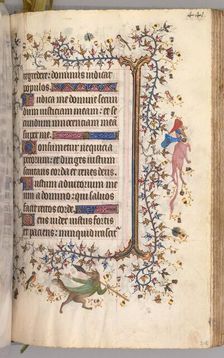 regredere: dominus iudicat
populos.
Iudica me domine secun
dum iusticiam meam: et se
cundum innocentiam meam
super me.
Consumetur nequicia pec
catorum: et diriges iustum
scrutans corda et renes deus.
Iustum adiutorium meum
a domino: qui saluos
facit rectos corde.
Deus iudex iustus fortis
et paciens: nunquid irascit